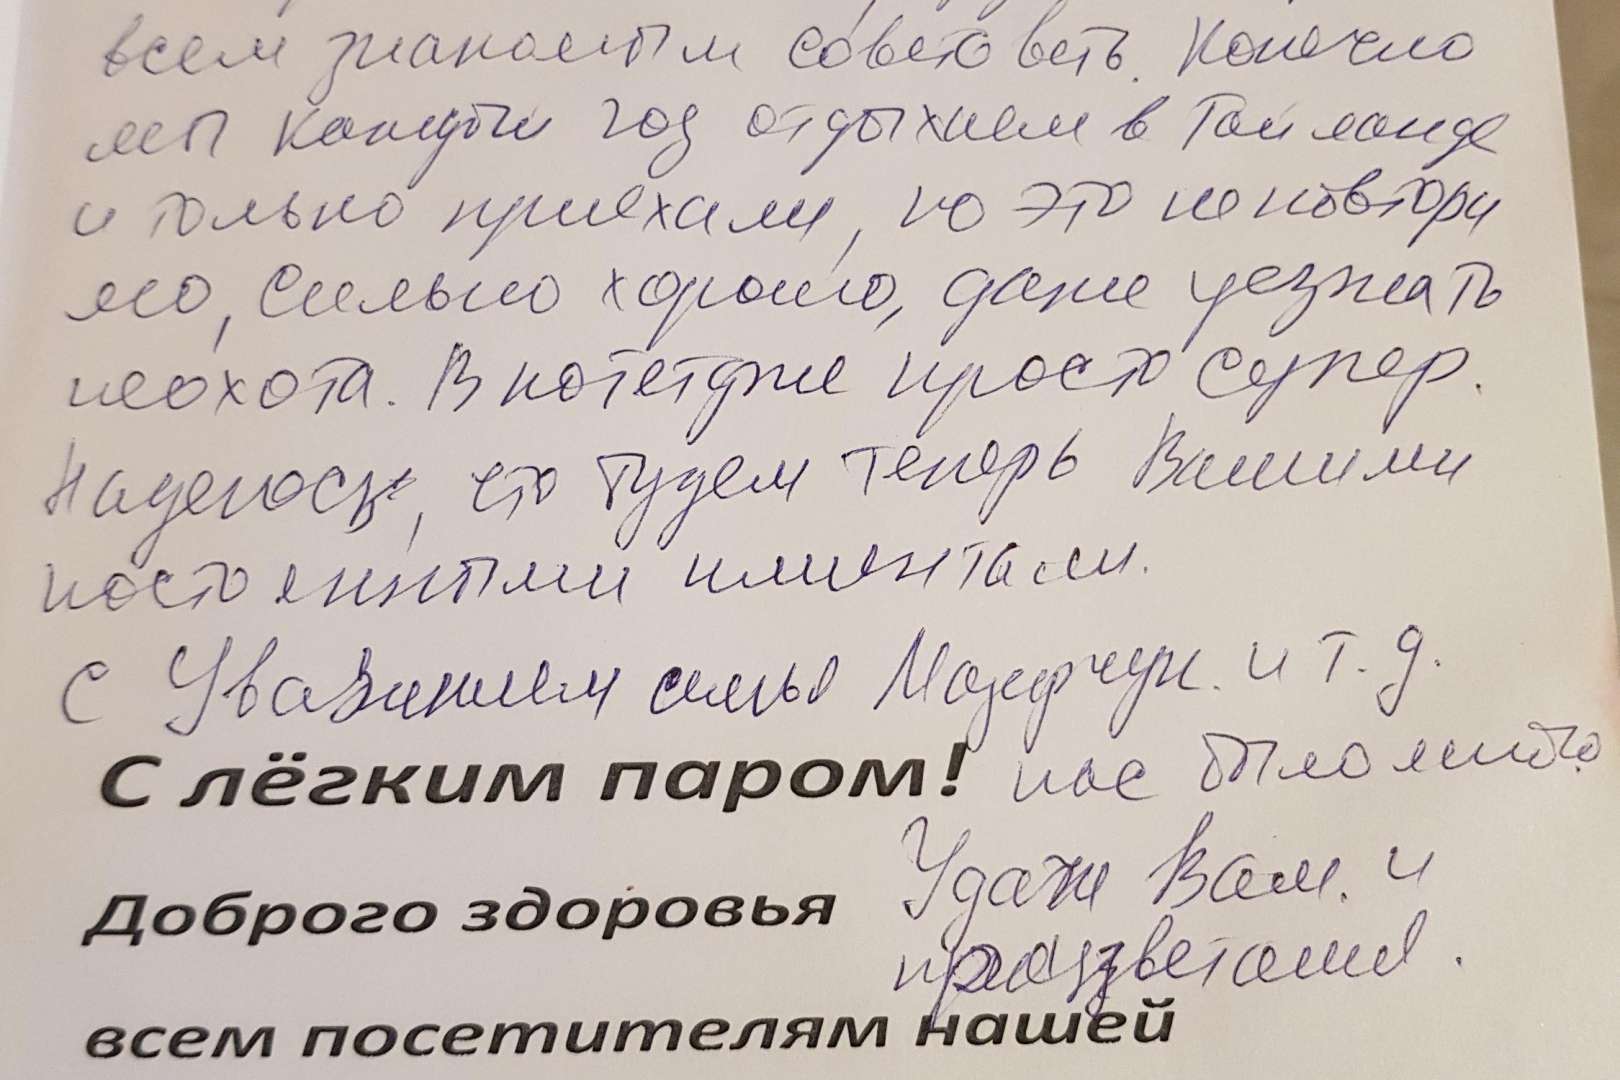 всем знакомым советовать. Конечно
мы каждый год отдыхаем в Тайланде
и только приехали, но это неповтори
мо, сильно хорошо, даже уезжать
неохота. В котетдже просто супер.
Надеюсь, что будем теперь Вашими
постоянными клиентами.
С Уважением семья и т.д.
С лёгким паром! нас было много
Удачи Вам. и
Доброго здоровья
процветания.
всем посетителям нашей